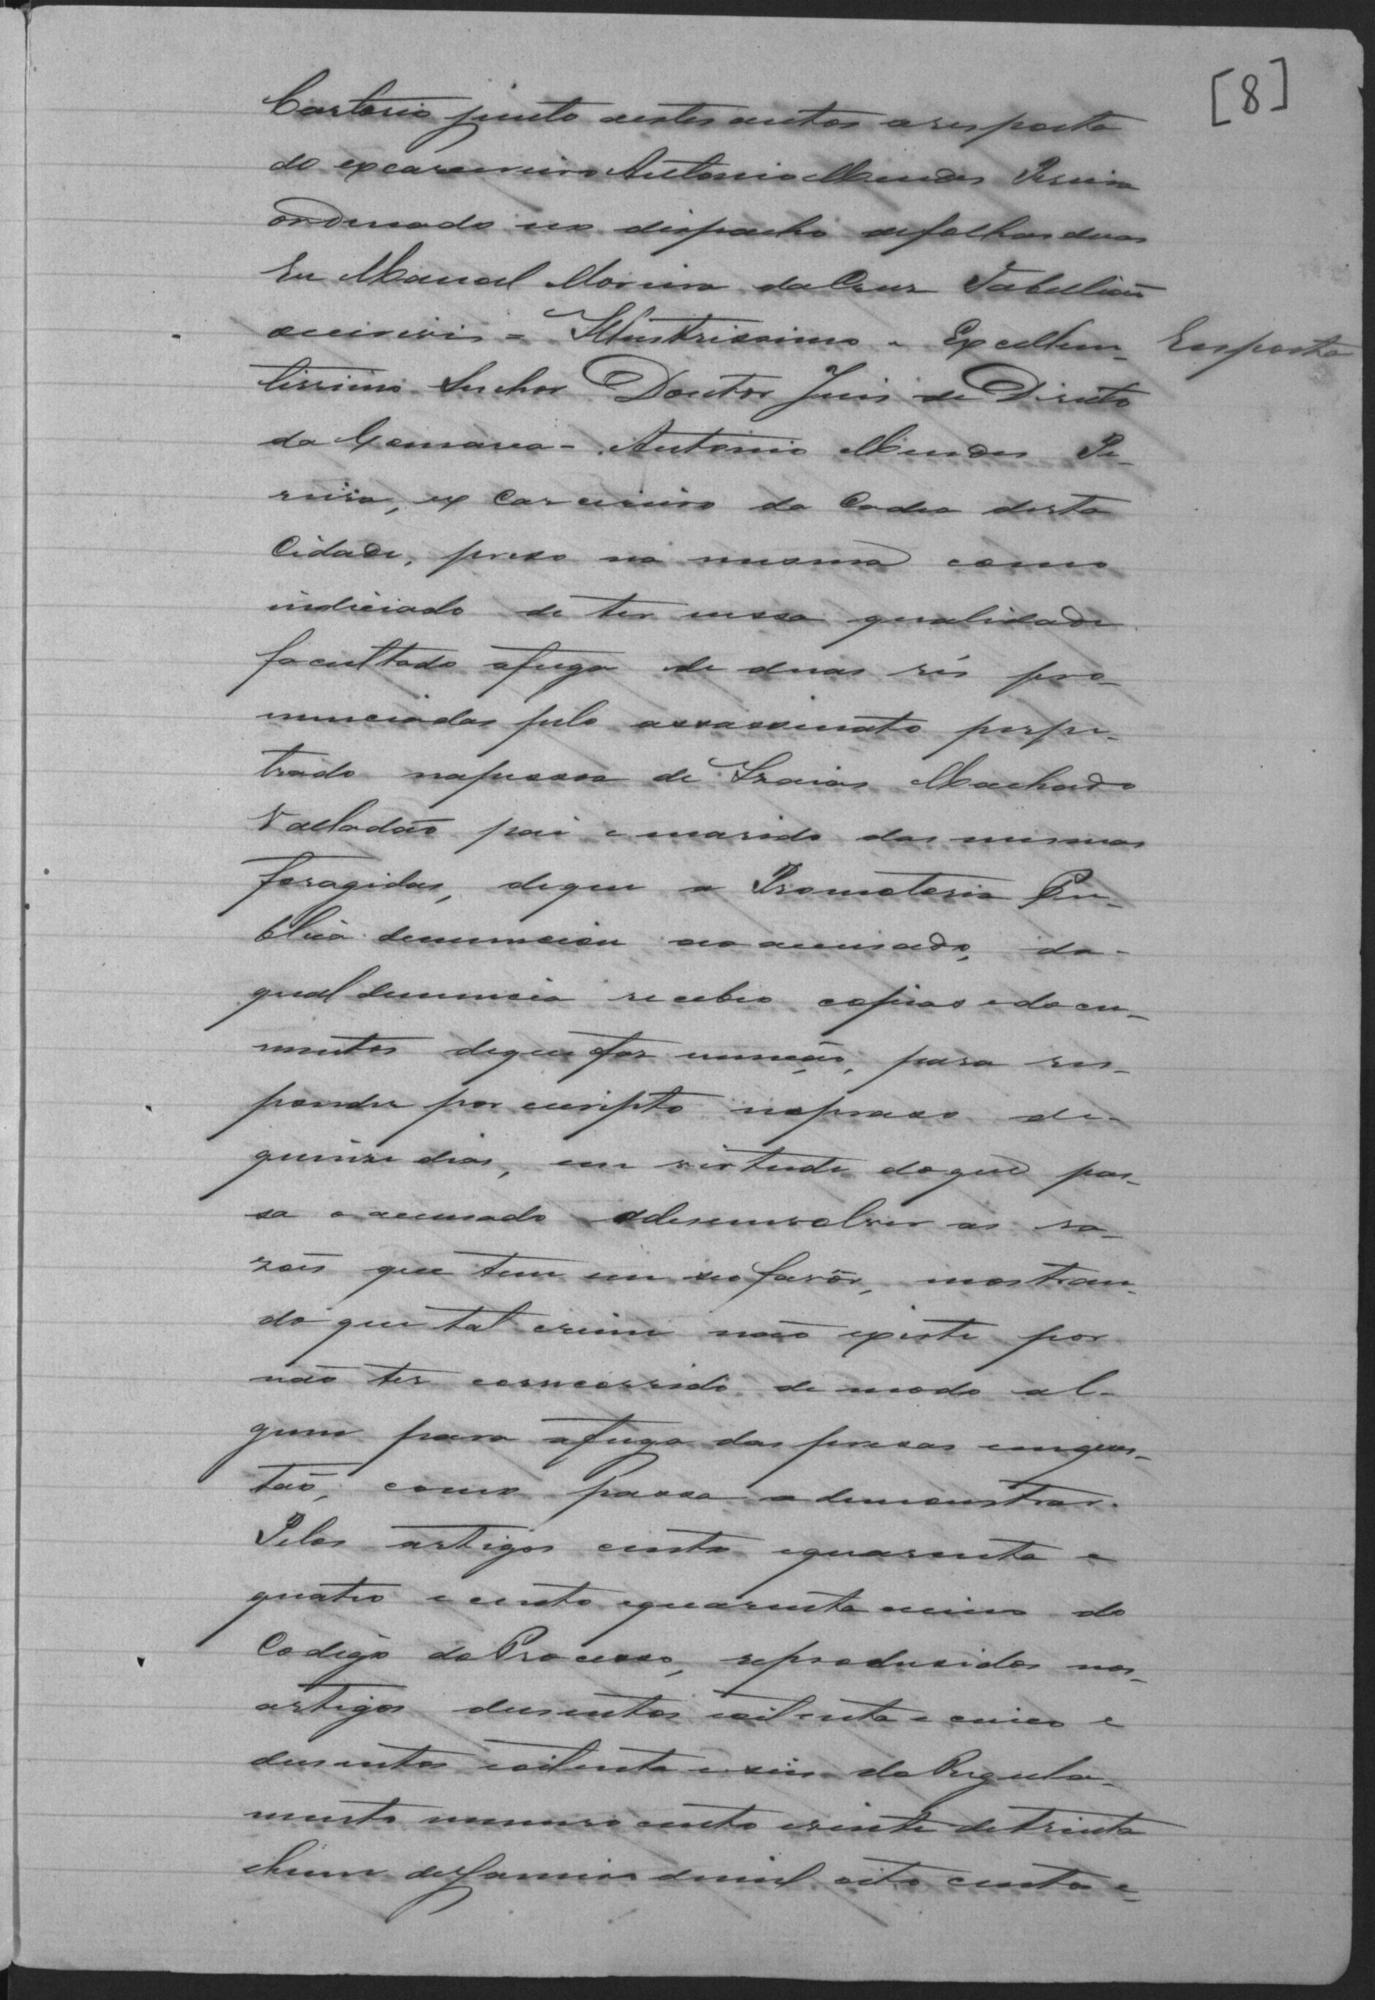 [8]
Cartorio junto a estes autos a resposta
do ex carcereiro Antonio Mendes Pereira
ordenado no despacho de folhas duas
Eu Manoel Moreira da Cruz Tabellião
escrevi = Illustrissimo e Excellen-
Resposta
tissimo Senhor Doutor Juis de Direito
da Comarca - Antonio Mendes Pe-
reira, ex Carcereiro da Cadea desta
Cidade, preso na mesma como
indiciado de ter nessa qualidade
facultado afuga de duas rés pro-
nunciadas pelo assassinato perpe-
trado napessoa de Izaias Machado
Valladão pai e marido das mesmas
foragidas, deque a Promotoria Pu-
blica denunciou ao accusado, da-
qual denuncia recebeo copias edocu-
mentos deque fas menção, para res-
ponder por escripto noprazo de-
quinze dias, em virtude doque pas-
sa o accusado adesenvolver as ra-
zões que tem em seo favôr, mostran-
do que tal crime não existe por
não ter concorrido de modo al-
gum para afuga das presas emques-
tão, como passa a demonstrar.
Pelos artigos cento equarenta e
quatro e cento equarenta e cinco do
Codigo do Processo, reproduzidos nos
artigos dusentos eoitenta e cinco e
dusentos eoitenta e seis do Regula-
mento numero cento evinte de trinta
ehum de Janeiro demil oito centos e